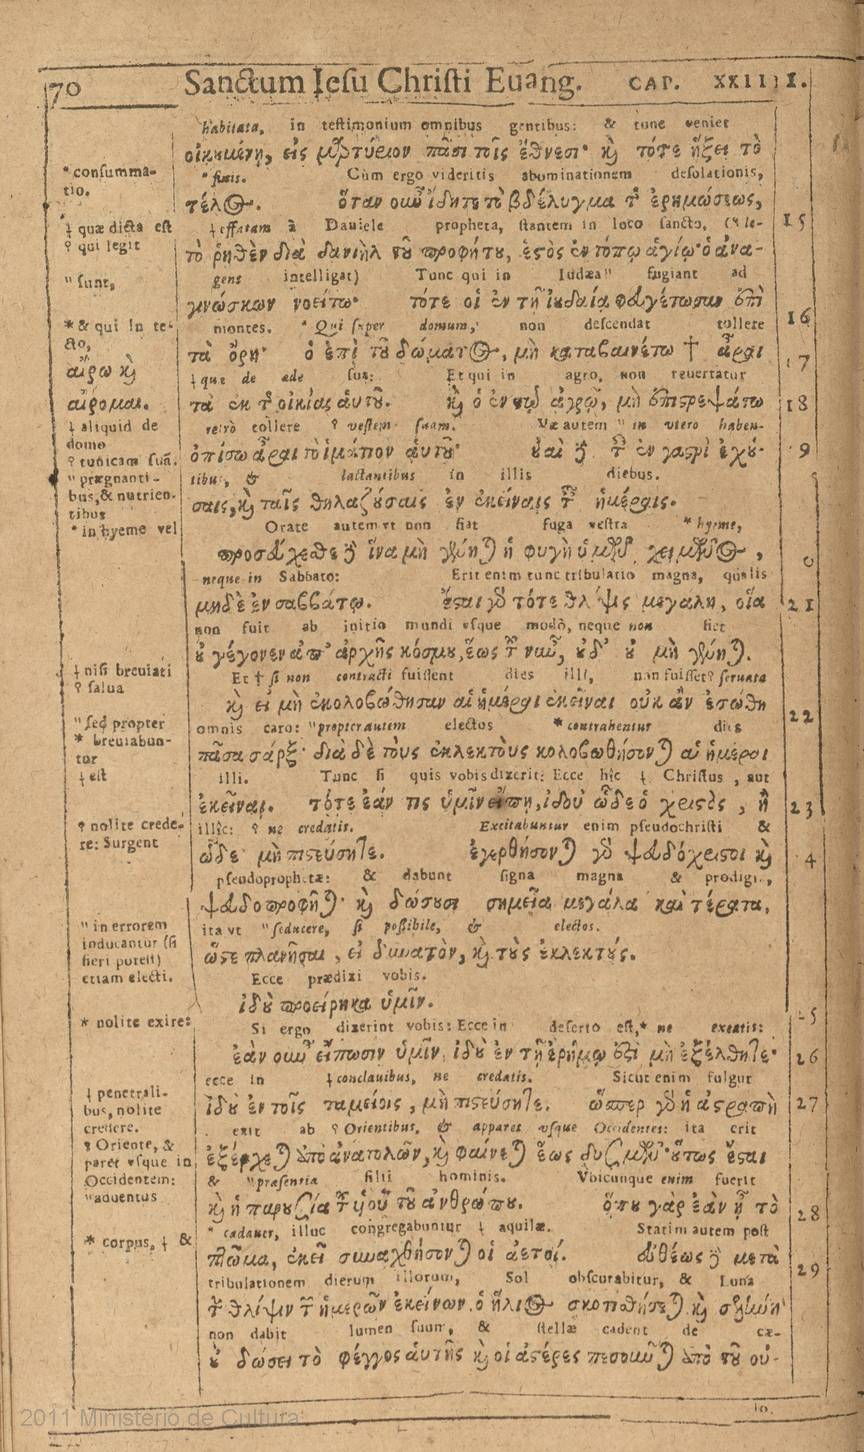 70 Sanctum Iesu Christi Euang. CAP. XXIIII.
habitata, in testimonium omnibus gentibus: & tunc veniet
οἰκουμένῃ, εἰς μαρτύριον πᾶσι τοῖς ἔθνεσι· καὶ τότε ἥξει τὸ
* consumma-
tio.
* finis. Cùm ergo videritis abominationem desolationis,
τέλος. ὅταν οὖν ἴδητε τὸ βδέλυγμα τῆς ἐρημώσεως,
15
ɟ quæ dicta est
ʔ qui legit
ɟ effatam à Daniele propheta, stantem in loco sancto, (ʔ le-
τὸ ῥηθὲν διὰ δανιὴλ τοῦ προφήτου, ἑστὸς ἐν τόπῳ ἁγίῳ· ὁ ἀνα-
" sunt,
gens intelligat) Tunc qui in Iudæa " fugiant ad
γινώσκων νοείτω· τότε οἱ ἐν τῇ ἰουδαίᾳ φευγέτωσαν ἐπὶ
16
* & qui in te-
cto,
montes. * Qui super domum, non descendat tollere
τὰ ὄρη· ὁ ἐπὶ τοῦ δώματος, μὴ καταβαινέτω † ἆραι
17
αἴρω καὶ
αἴρομαι.
ɟ que de æde sua: Et qui in agro, non reuertatur
τὰ ἐκ τῆς οἰκίας αὐτοῦ. καὶ ὁ ἐν τῷ ἀγρῷ, μὴ ἐπιστρεψάτω
18
ɟ aliquid de
domo
ʔ tunicam suã.
retrò tollere ʔ vestem suam. Væ autem " in vtero haben-
ὀπίσω ἆραι τὸ ἱμάτιον αὐτοῦ· οὐαὶ δὲ ταῖς ἐν γαστρὶ ἐχού-
9
" prægnanti-
bus, & nutrien-
tibus
tibus, & lactantibus in illis diebus.
σαις, καὶ ταῖς θηλαζούσαις ἐν ἐκείναις ταῖς ἡμέραις.
* in hyeme vel
Orate autem vt non fiat fuga vestra * hyeme,
προσεύχεσθε δὲ ἵνα μὴ γένηται ἡ φυγὴ ὑμῶν χειμῶνος,
0
neque in Sabbato: Erit enim tunc tribulatio magna, qualis
μηδὲ ἐν σαββάτῳ. ἔσται γὰρ τότε θλίψις μεγάλη, οἵα
21
non fuit ab initio mundi vsque modò, neque non fiet
οὐ γέγονεν ἀπ' ἀρχῆς κόσμου, ἕως τοῦ νῦν, οὐδ' οὐ μὴ γένηται.
ɟ nisi breuiati
ʔ salua
Et † si non contracti fuissent dies illi, non fuisset ʔ seruata
καὶ εἰ μὴ ἐκολοβώθησαν αἱ ἡμέραι ἐκεῖναι οὐκ ἂν ἐσώθη
22
" sed propter
* breuiabun-
tur
omnis caro: " propter autem electos * contrahentur dies
πᾶσα σάρξ· διὰ δὲ τοὺς ἐκλεκτοὺς κολοβωθήσονται αἱ ἡμέραι
ɟ est
illi. Tunc si quis vobis dixerit: Ecce hîc ɟ Christus, aut
ἐκεῖναι. τότε ἐάν τις ὑμῖν εἴπῃ, ἰδοὺ ὧδε ὁ χριστὸς, ἢ
23
ʔ nolite crede-
re: Surgent
illîc: ʔ ne credatis. Excitabuntur enim pseudochristi &
ὧδε· μὴ πιστεύσητε. ἐγερθήσονται γὰρ ψευδόχριστοι καὶ
4
pseudoprophetæ: & dabunt signa magna & prodigia,
ψευδοπροφῆται· καὶ δώσουσι σημεῖα μεγάλα καὶ τέρατα,
" in errorem
inducantur (si
fieri potest)
etiam electi.
ita vt " seducere, si possibile, & electos.
ὥστε πλανῆσαι, εἰ δυνατὸν, καὶ τοὺς ἐκλεκτούς.
Ecce prædixi vobis.
ἰδοὺ προείρηκα ὑμῖν.
25
* nolite exire:
Si ergo dixerint vobis: Ecce in deserto est, * ne exeatis:
ἐὰν οὖν εἴπωσιν ὑμῖν, ἰδοὺ ἐν τῇ ἐρήμῳ ἐστὶ μὴ ἐξέλθητε·
26
ɟ penetrali-
bus, nolite
credere.
ecce in ɟ conclauibus, ne credatis. Sicut enim fulgur
ἰδοὺ ἐν τοῖς ταμείοις, μὴ πιστεύσητε. ὥσπερ γὰρ ἡ ἀστραπὴ
27
ʔ Oriente, &
paret vsque in
Occidentem:
exit ab ʔ Orientibus, & apparet vsque Occidentes: ita erit
ἐξέρχεται ἀπὸ ἀνατολῶν, καὶ φαίνεται ἕως δυσμῶν· οὕτως ἔσται
" aduentus
& " præsentia filii hominis. Vbicunque enim fuerit
καὶ ἡ παρουσία τοῦ υἱοῦ τοῦ ἀνθρώπου. ὅπου γὰρ ἐὰν ᾖ τὸ
28
* corpus, ɟ &
* cadauer, illuc congregabuntur ɟ aquilæ. Statim autem post
πτῶμα, ἐκεῖ συναχθήσονται οἱ ἀετοί. εὐθέως δὲ μετὰ
29
tribulationem dierum illorum, Sol obscurabitur, & Luna
τὴν θλίψιν τῶν ἡμερῶν ἐκείνων, ὁ ἥλιος σκοτισθήσεται καὶ σελήνη
non dabit lumen suum, & stellæ cadent de cæ-
οὐ δώσει τὸ φέγγος αὑτῆς καὶ οἱ ἀστέρες πεσοῦνται ἀπὸ τοῦ οὐ-
lo.
2011 Ministerio de Cultura